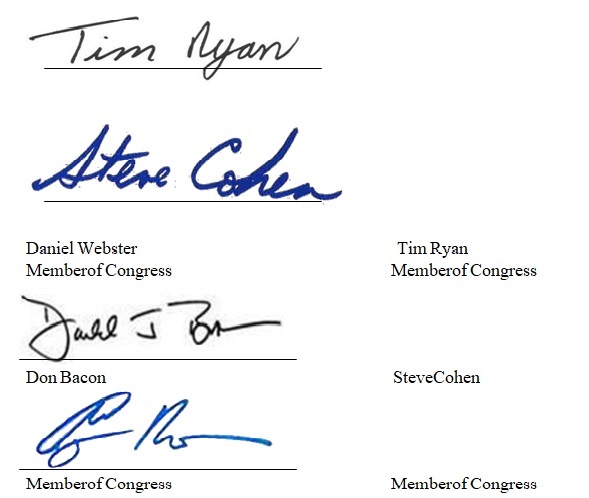 Tim Ryan
Steve Cohen
Daniel Webster Tim Ryan
Memberof Congress Memberof Congress
J
Don Bacon SteveCohen
Memberof Congress Memberof Congress